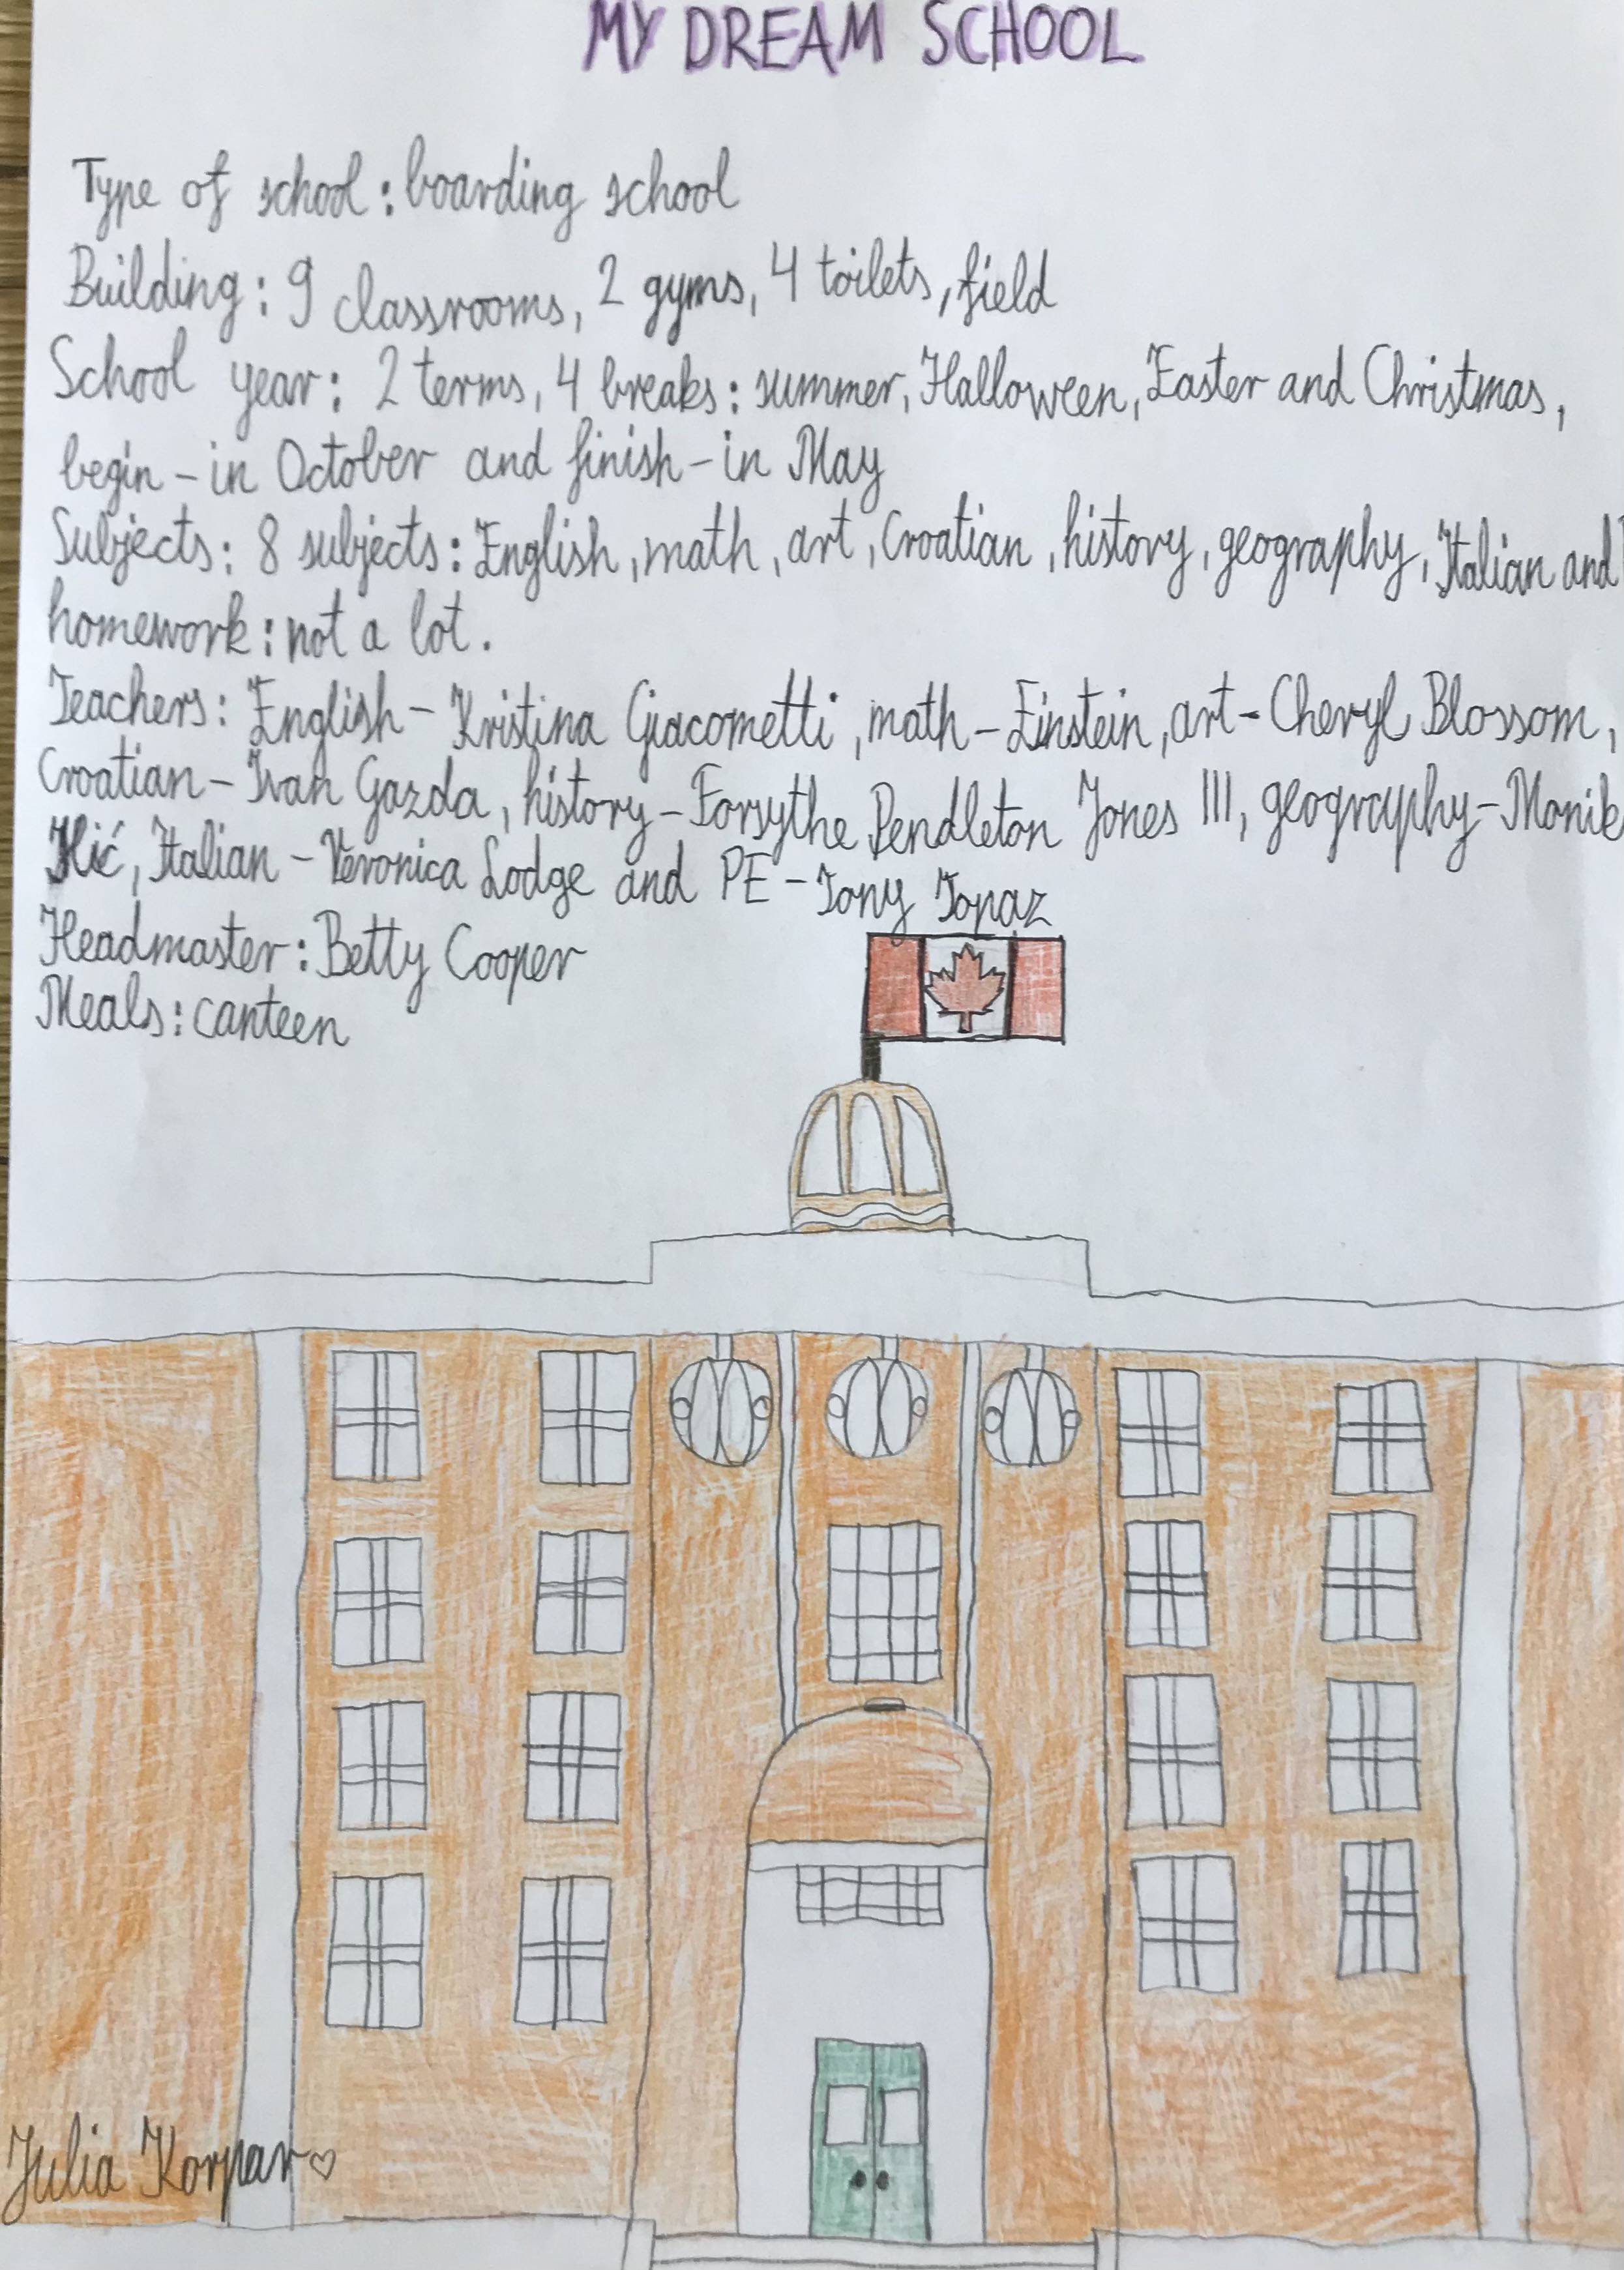 MY DREAM SCHOOL
Type of school: boarding school
Building: 9 classrooms, 2 gyms, 4 toilets, field
School year: 2 terms, 4 breaks: summer, Halloween, Easter and Christmas,
begin - in October and finish - in May
Subjects: 8 subjects: English, math, art, Croatian, history, geography, Italian and
homework: not a lot.
Teachers: English - Kristina Giacometti, math - Einstein, art - Cheryl Blossom,
Croatian - Ivan Gazda, history - Forsythe Pendleton Jones III, geography - Monik
Ilić, Italian - Veronica Lodge and PE - Tony Topaz
Headmaster: Betty Cooper
Meals: canteen
Julia Korpar ♡